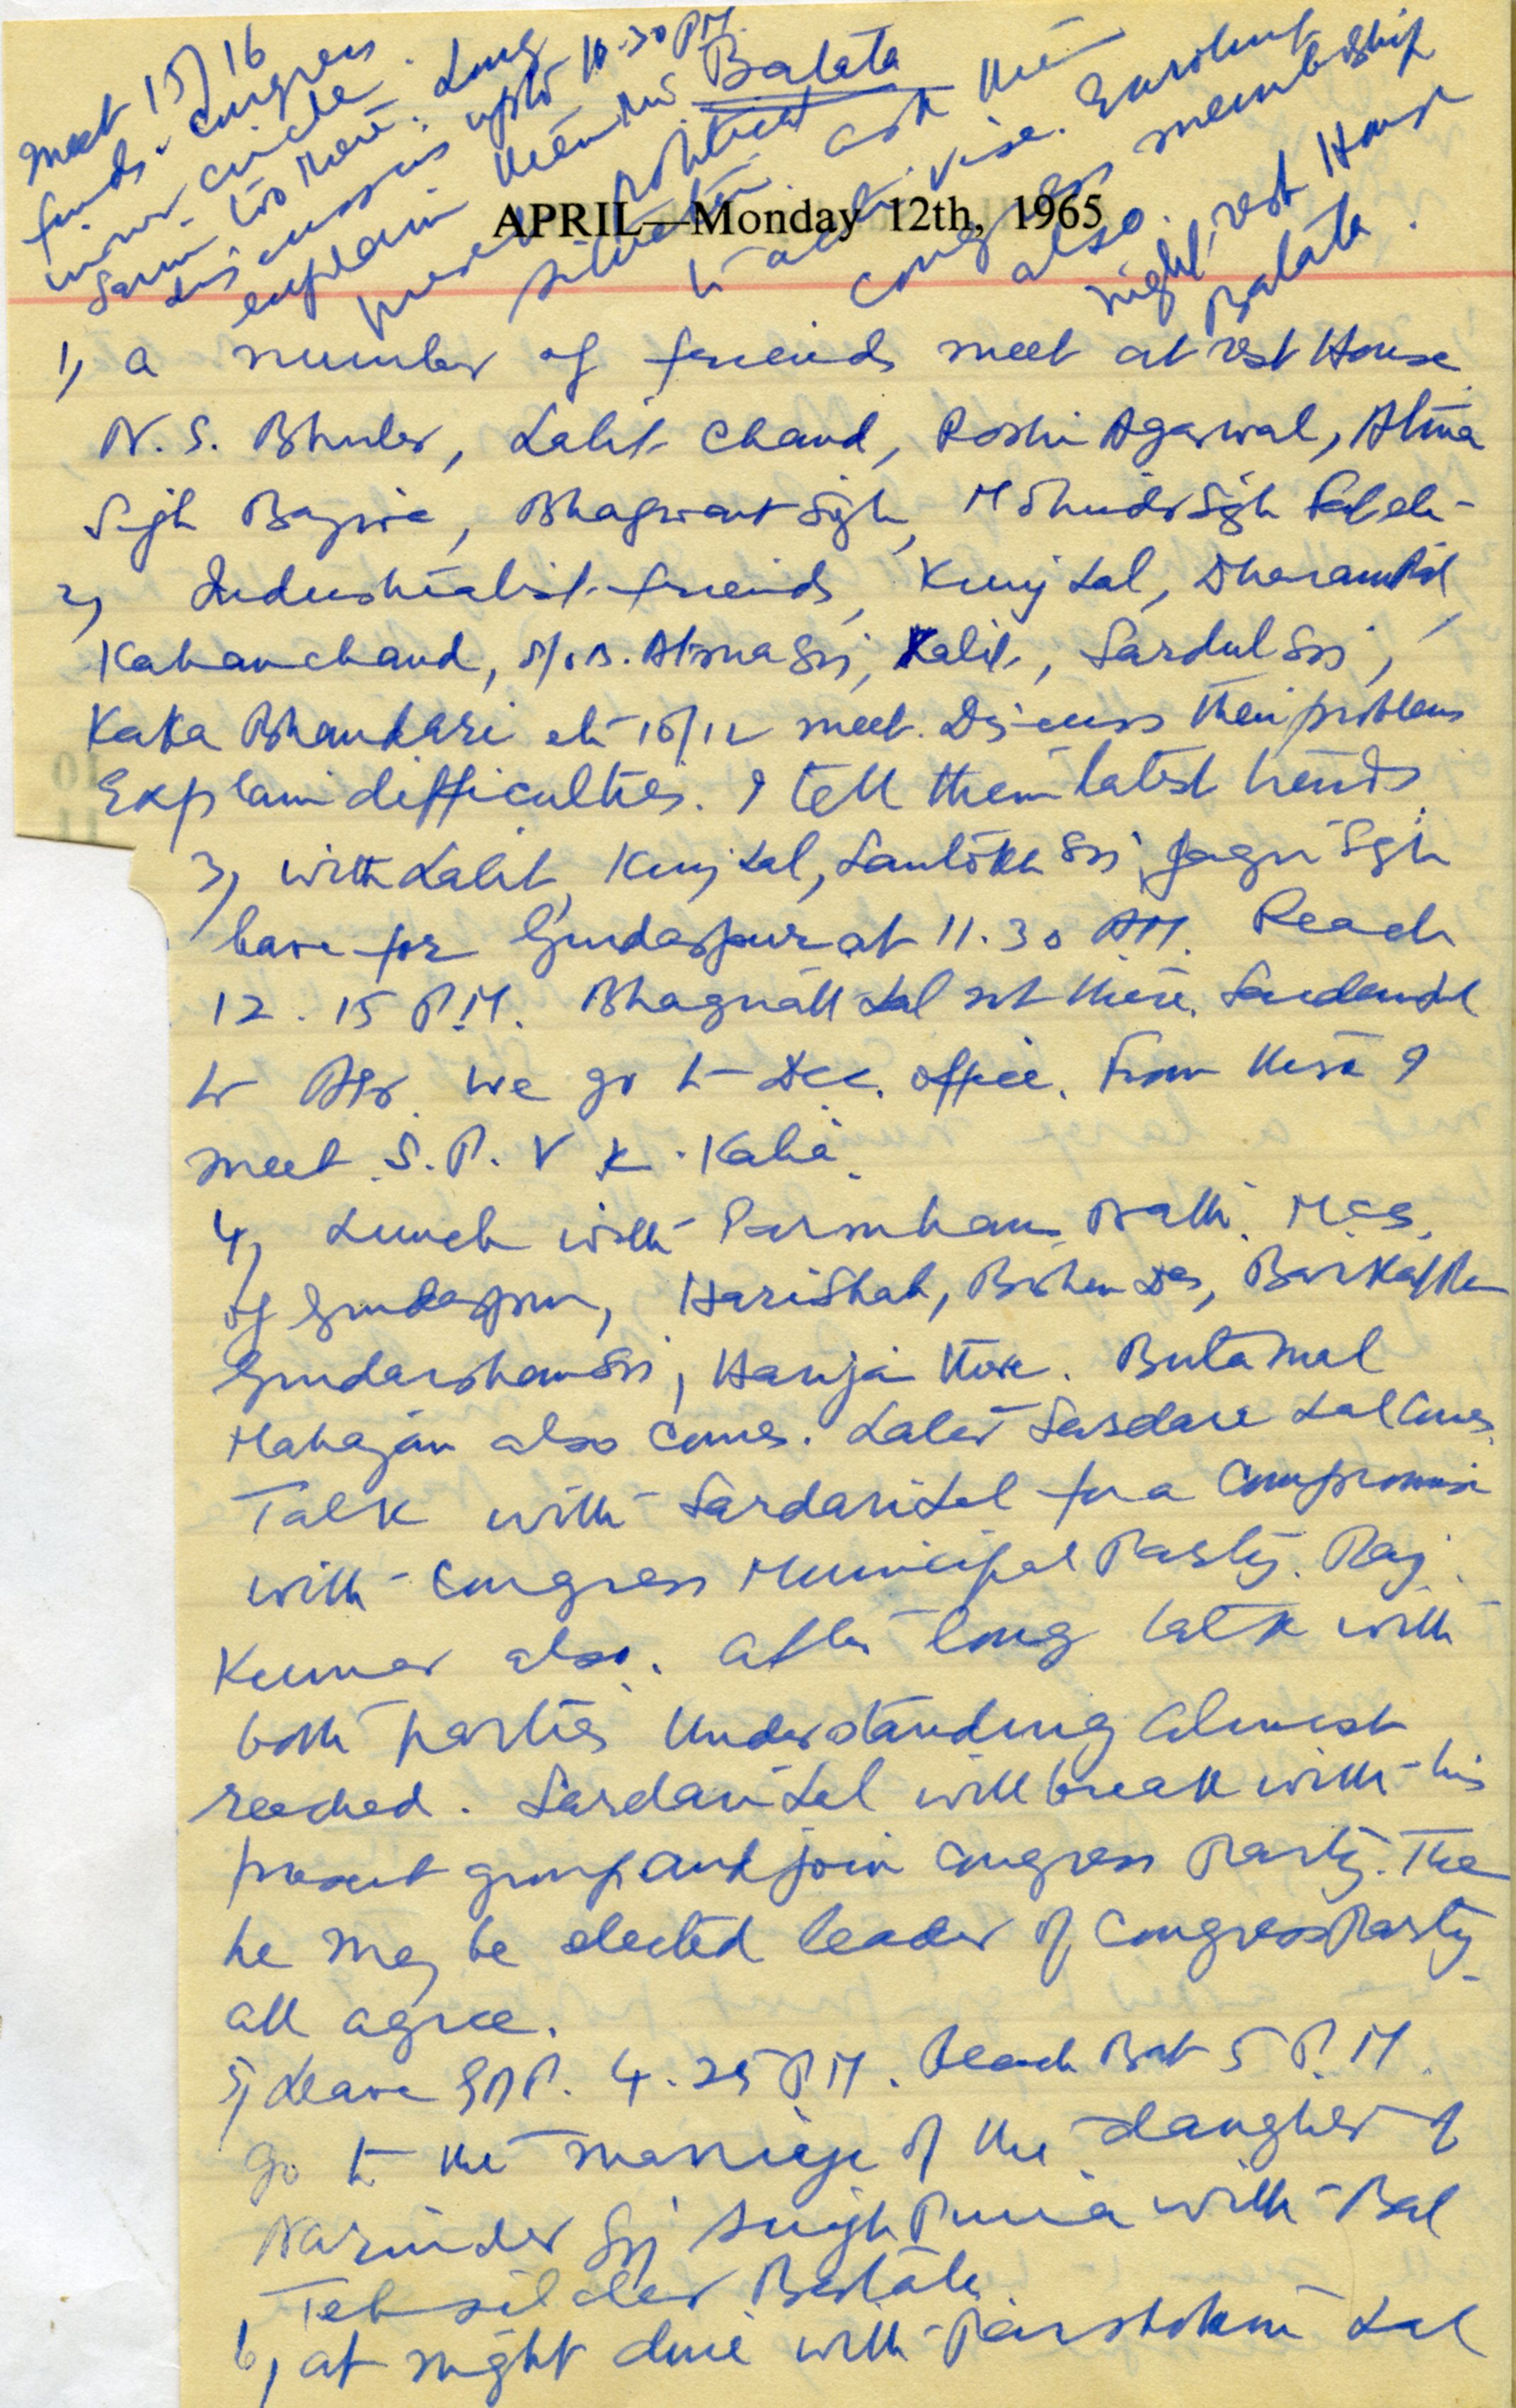 Batala
APRIL—Monday 12th, 1965
1, a number of friends meet at rest House
N. S. Bhuler, Lalit Chand, Roshi Agarwal, Atma
Sigh Bajwa, Bhagwant Sigh, Mohinder Sigh
2, Industrialist friends, Kunj Lal,
Kahanchand, Atma Sgj, Lalit, Sardul Sgj,
Kaka Bhandari etc 10/12 meet. Discuss their problems
Explain difficulties. I tell them latest trends
3, with Lalit, Kunj Lal, Santokh Sgj, Jagir Sgh
leave for Gurdaspur at 11.30 AM. Reach
12.15 P.M. Bhagnath Lal not there.
to Asr. we go to Dcc. office. From there I
meet S.P. V K. Kalia.
4, Lunch with
of Gurdaspur, Hari Shah, Bishen Das,
Gurdarshan Sgj, there. Buta Mal
Mahajan also comes. Later Sardari Lal comes.
Talk with Sardari Lal for a compromise
with Congress Municipal Party. Raj
Kumar also. After long talk with
both parties understanding almost
reached. Sardari Lal will break with his
present group and join Congress Party. The
he may be elected leader of Congress Party
all agree.
5, Leave GDP. 4.25 P.M. Reach Bat 5 P.M.
go to the marriage of the daughter of
Narinder Sgj Singh with Bal
Tehsildar Batala
6, at night dine with Parshotam Lal
meet 15/16
funds. Congress
inner circle.
same too there. Long
discussions upto 10.30 PM.
explain them the
present political
situation. ask them
to advise. Enrolment
congress membership
also.
night rest House
Batala.